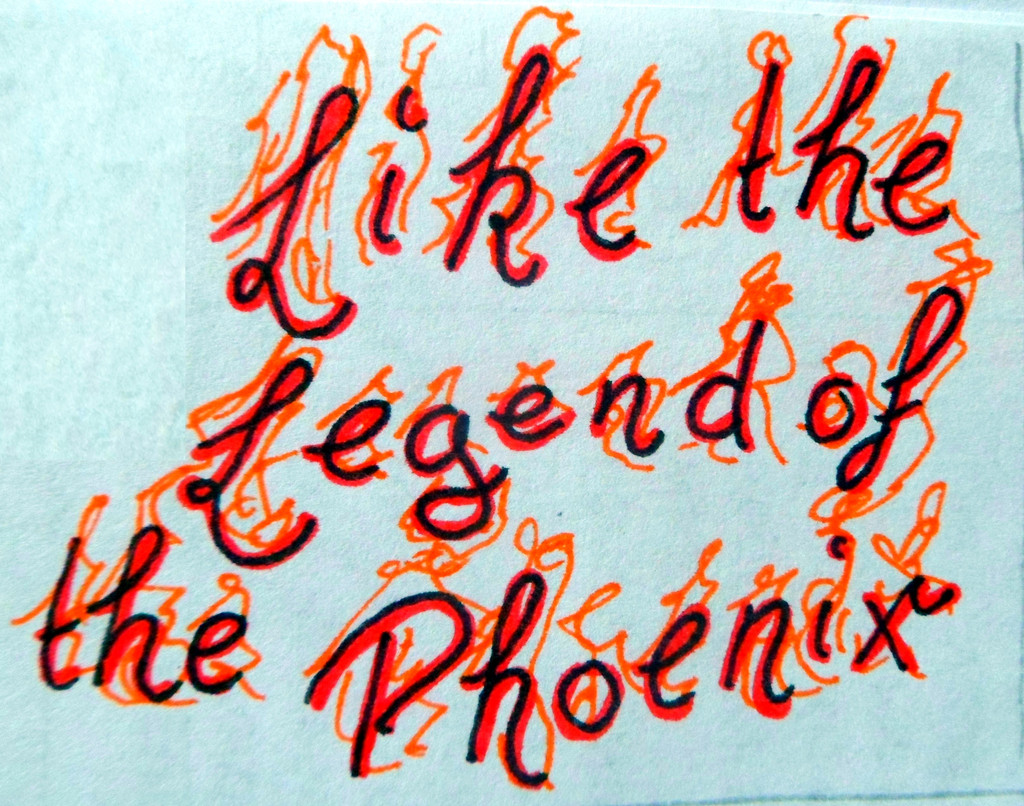 Like the
Legend of
the Phoenix